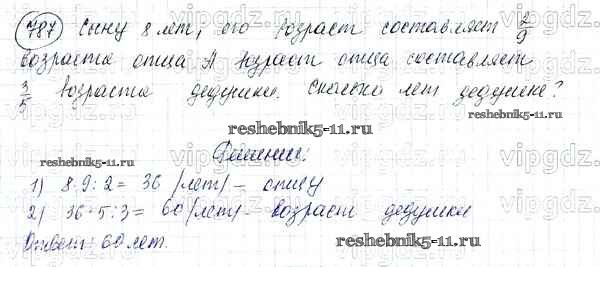 787 Сыну 8 лет, его возраст составляет 2/9
возраста отца А возраст отца составляет
3/5 возраста дедушки. Сколько лет дедушке?
reshebnik5-11.ru
reshebnik5-11.ru
Решение:
1) 8·9:2= 36 (лет) – отцу
2) 36·5:3= 60 (лет) – возраст дедушки
Ответ: 60 лет.
reshebnik5-11.ru
vipgdz.com